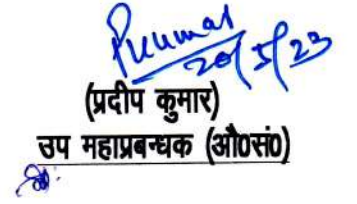 Pkumar
20/5/23
(प्रदीप कुमार)
उप महाप्रबन्धक (औ0सं0)